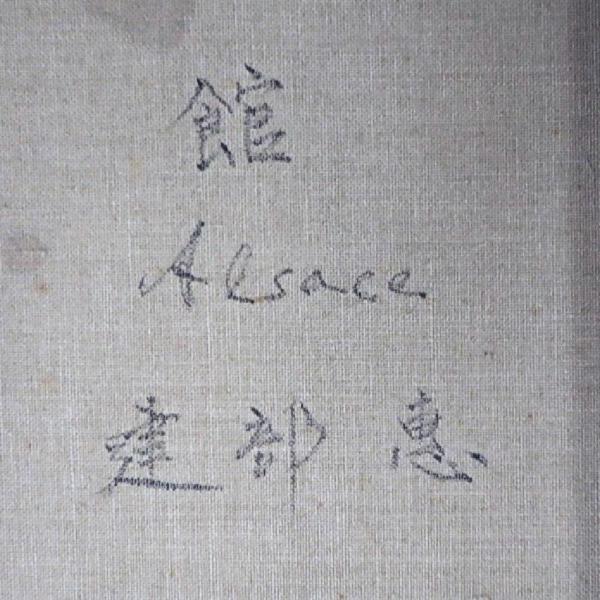 館
Alsace
建部 惠